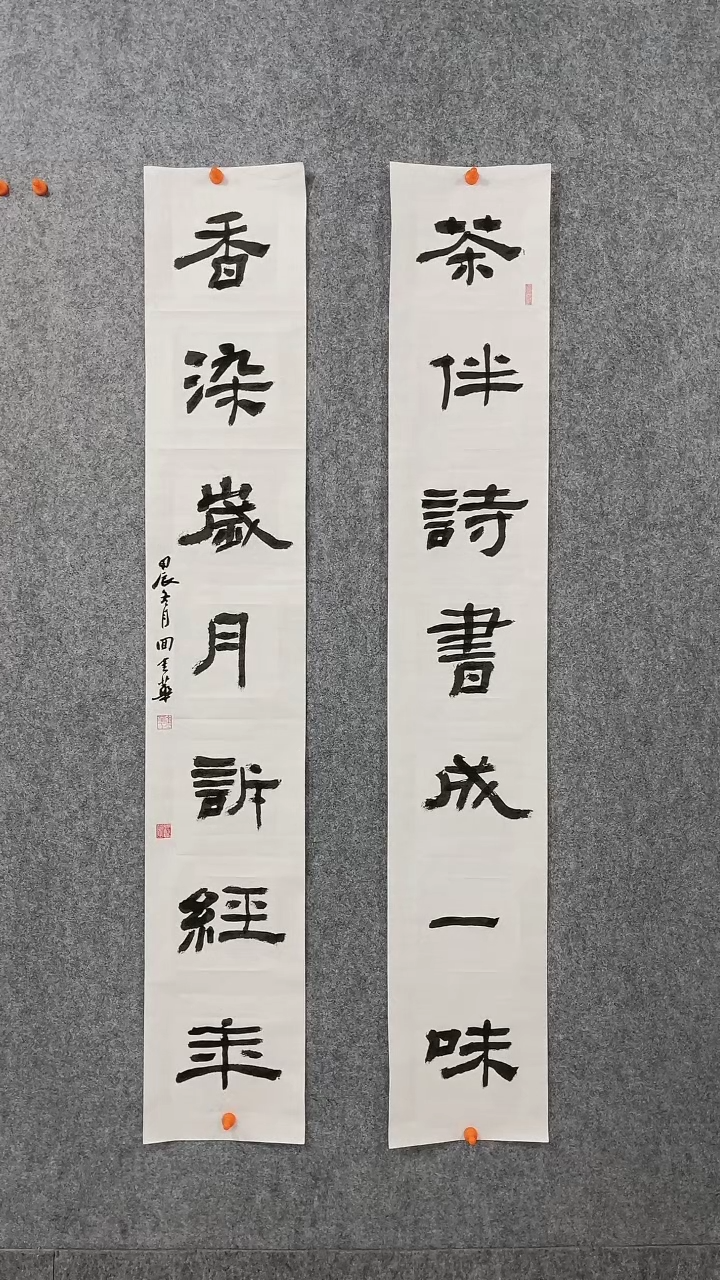 茶伴詩書成一味
香染歲月訴經年
甲辰冬月